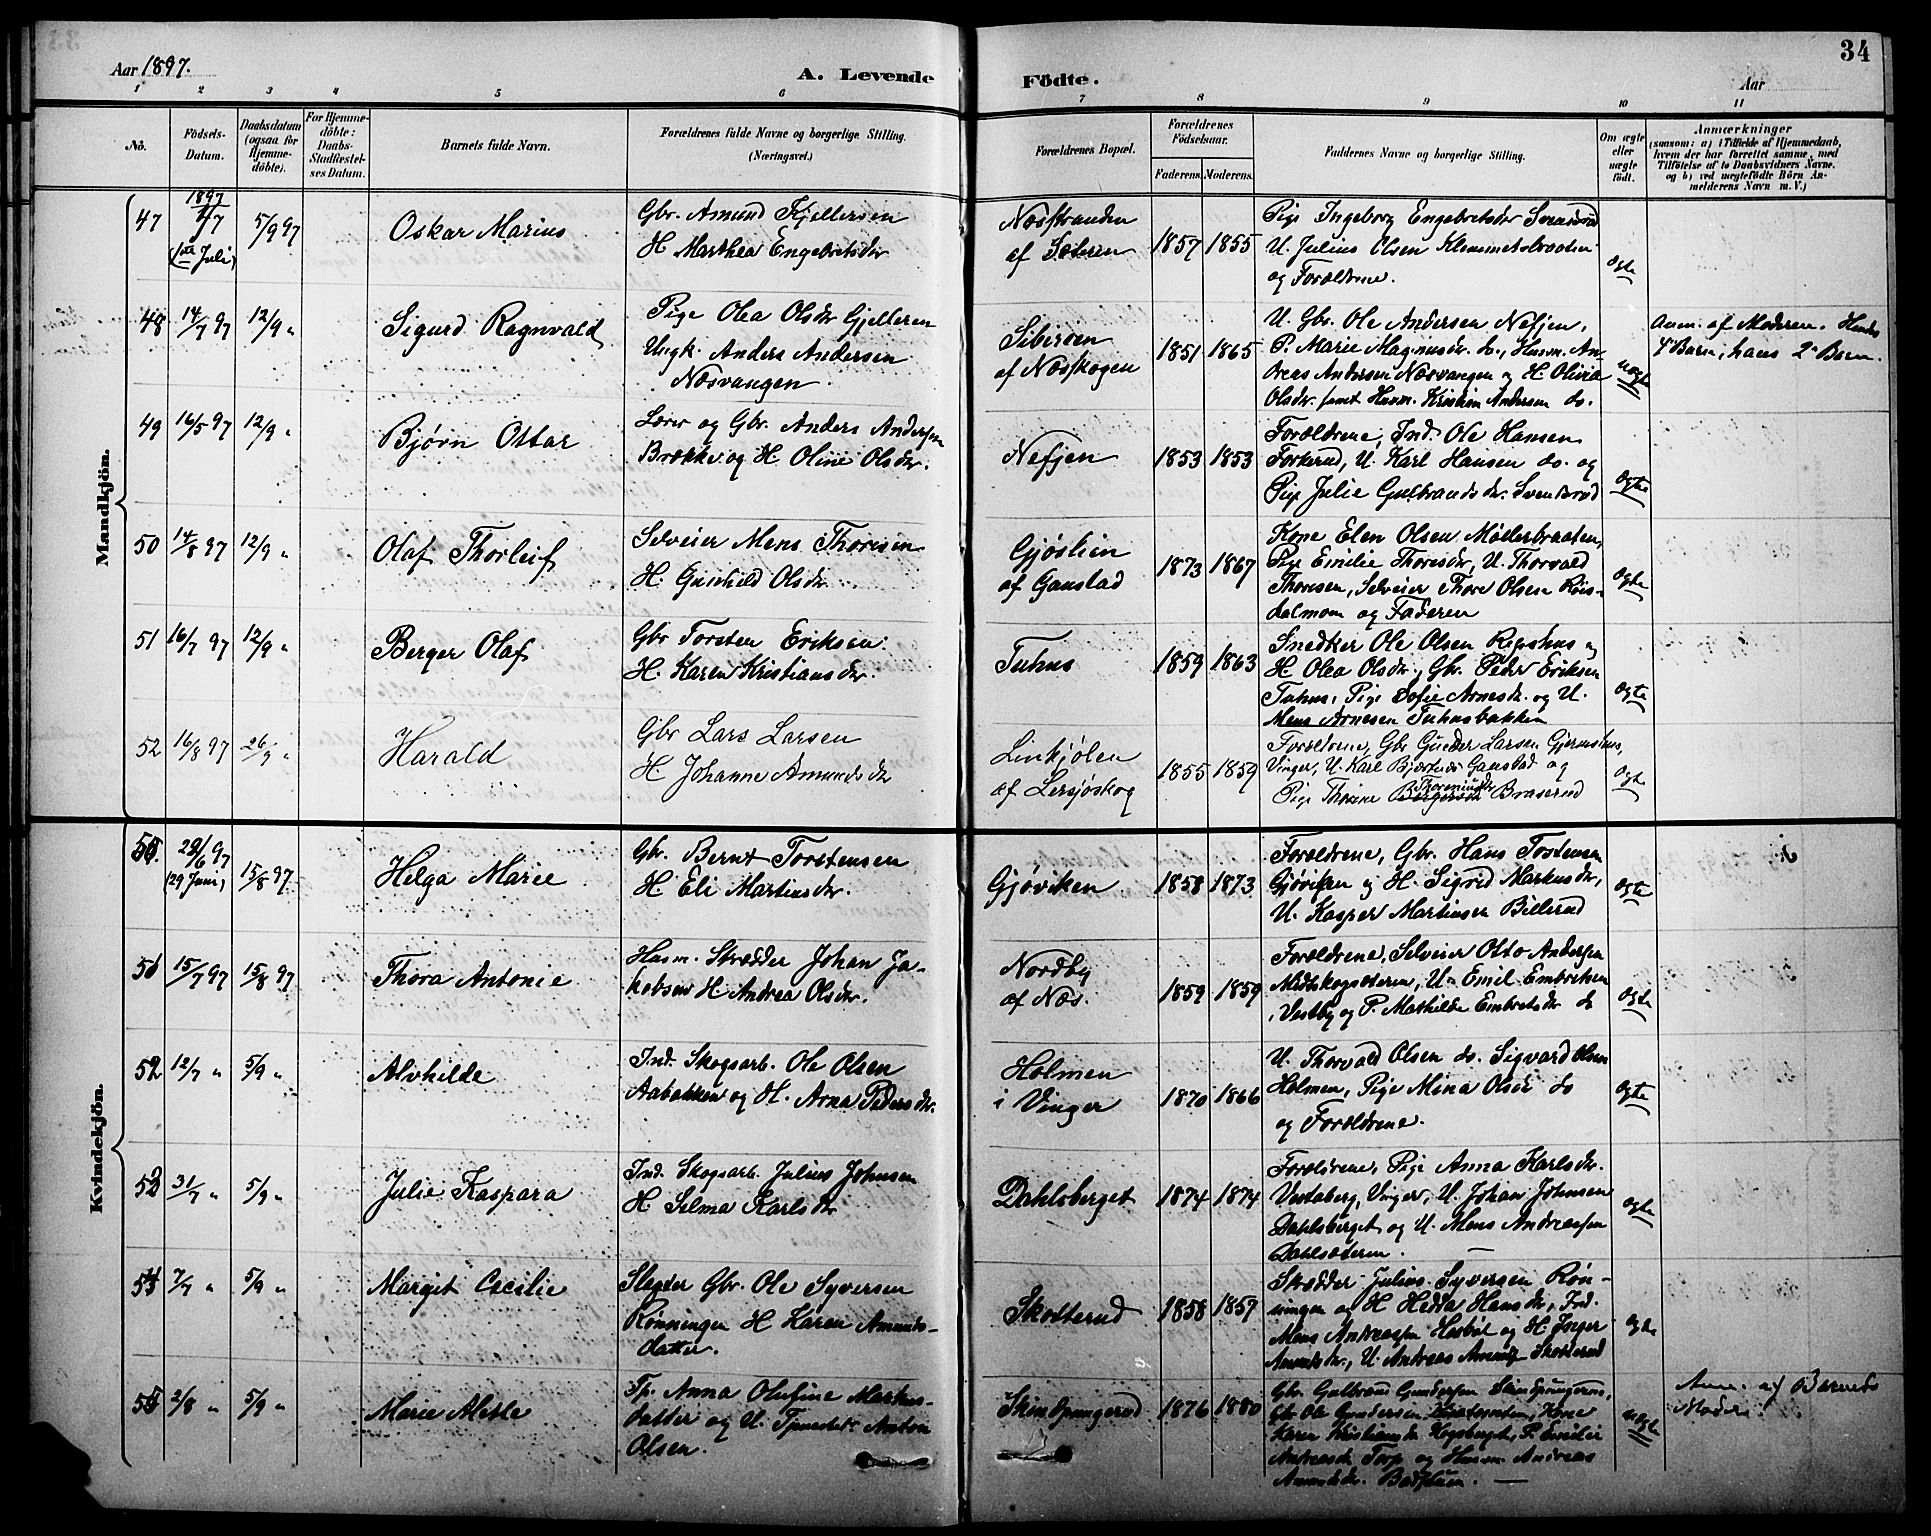 34
Aar 1897.
A. Levende
Födte.
Aar
1 2 3 4 5 6 7 8 9 10 11
No.
Födsels-
Datum.
Daabsdatum
(ogsaa for
Hjemme-
döbte).
For Hjemme-
döbte:
Daabs-
Stadfæstel-
ses Datum.
Barnets fulde Navn.
Forældrenes fulde Navne og borgerlige Stilling.
(Næringsvei.)
Forældrenes Bopæl.
Forældrenes
Födselsaar.
Faderens. Moderens.
Faddernes Navne og borgerlige Stilling.
Om ægte
eller
uægte
födt.
Anmærkninger
(saasom: a) i Tilfælde af Hjemmedaab,
hvem der har forrettet samme, med
Tilföielse af to Daabsvidners Navne.
og b) ved uægtefödte Börn An-
melderens Navn m. V.)
Mandkjön.
47
1897
1/7
(1ste Juli)
5/9 97
Oskar Marius
Gbr. Amund Kjellersen
H Marthea Engebretsdr
Næsstranden
af Sæteren
1857 1855
Pige Ingeborg Engebretsdr
U. Julius Olsen Klemmetsbraaten
og Forældrene.
ægte
48
14/7 97
12/9 "
Sigurd Ragnvald
Pige Olea Olsdr Gjelleren
Ungk. Anders Andersen
Næsvangen.
Sibirien
af Næsskogen
1851 1865
U. Gbr. Ole Andersen Nefjen,
P. Marie Magnusdr. do., Husm. An-
dreas Andersen Næsvangen og H. Olivia
Olsdr. samt Husm. Kristian Andersen do.
uægte
Anm. af Moderen. Hendes
4de Barn, hans 2det Barn.
49
16/5 97
12/9 "
Bjørn Ottar
Lærer og Gbr. Anders Andersen
Brække og H. Oline Olsdr.
Nefjen
1853 1853
Forældrene, Ind. Ole Hansen
Forkerud, U. Karl Hansen do. og
Pige Julie Gulbrandsdr. Svensbrød
ægte
50
14/8 97
12/9 "
Olaf Thorleif
Selveier Mens Thoresen
H. Gunhild Olsdr
Gjøslien
af Ganstad
1873 1867
Kone Elen Olsen Møllerbraaten,
Pige Emilie Thoresdr, U. Thorvald
Thoresen, Selveier Thore Olsen Røis-
dalmoen og Faderen
ægte
51
16/7 97
12/9 "
Berger Olaf
Gbr Torsten Eriksen
H. Karen Kristiansdr.
Tuhus
1859 1863
Snedker Ole Olsen Repshus og
H. Olea Olsdr, Gbr. Peder Eriksen
Tuhus, Pige Sofie Arnesdr. og U.
Mens Arnesen Tuhusbakken
ægte
52
16/8 97
26/9 "
Harald
Gbr Lars Larsen
H. Johanne Amundsdr
Linkjølen
af Lersjøskog
1855 1859
Forældrene, Gbr Gunder Larsen
Vinger, U. Karl Ganstad og
Pige Thorine Braserud
ægte
Kvindekjön.
50.
29/6 97
(29 Juni)
15/8 97.
Helga Marie
Gbr. Bernt Torstensen
H. Eli Martinsdr.
Gjøviken
1858 1873
Forældrene, Gbr. Hans Tostensen
Gjøviken og H. Sigrid Markusdr,
U. Kasper Martinsen Billerud
ægte
51
15/7 97
15/8 97
Thora Antonie
Husm. Skrædder Johan Ja-
kobsen H. Andrea Olsdr.
Nordby
af Næs.
1859 1859
Forældrene, Selveier Otto Andersen
Midtskogsæteren, U. Emil Embretsen
Vestby og P. Mathilde Embretsdr do
ægte
52
12/7 "
5/9 "
Alvhilde
Ind. Skogsarb. Ole Olsen
Aabakken og H. Arna Pedersdr.
Holmen
i Vinger
1870 1866
U. Thorvald Olsen do. Sigvard Olsen
Holmen, Pige Mina Olsen do
og Forældrene.
ægte
53
31/7 "
5/9 "
Julie Kaspara
Ind. Skogsarb. Julius Johnsen
H. Selma Karlsdr
Dahlsberget
1874 1874
Forældrene, Pige Anna Karlsdr.
Vestaberg, Vinger, U. Johan Johnsen
Dahlsberget og U. Mens Andreassen
Dahlsæteren.
ægte
54
7/7 "
5/9 "
Margit Cecilie
Slagter Gbr. Ole Syversen
Rønningen H Karen Amunds-
datter.
Skotterud
1858 1857
Skrædder Julius Syversen Røn-
ningen og H Hedda Hansdr, Ind.
Mens Andreassen og H. Inger
Amundsdr, U. Andreas Skotterud
ægte
55
2/8 "
5/9 "
Marie Alette
Tp. Anna Olufine Markus-
datter og U. Tjenestek. Anton
Olsen.
Skindpungerud
1876 1880
Gbr. Gulbrand Gundersen
Gbr Ole Gundersen Kone
Karen Kristiansdr P. Emilie
Andreasdr Torp og Husm. Andreas
uægte
Anm. af Barnets
Moder